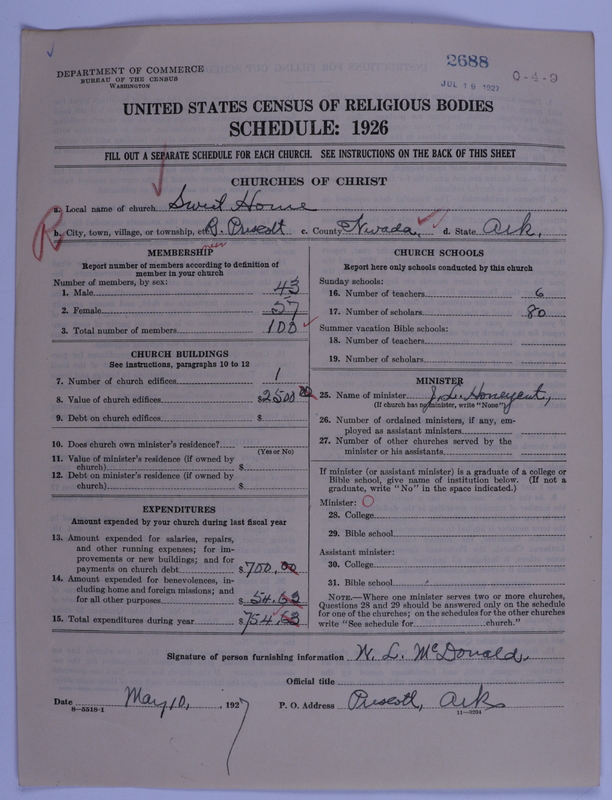 2688
DEPARTMENT OF COMMERCE
BUREAU OF THE CENSUS
WASHINGTON
JUL 19 1927
0-4-9
UNITED STATES CENSUS OF RELIGIOUS BODIES
SCHEDULE: 1926
FILL OUT A SEPARATE SCHEDULE FOR EACH CHURCH. SEE INSTRUCTIONS ON THE BACK OF THIS SHEET
CHURCHES OF CHRIST
a. Local name of church Sweet Home
R
b. City, town, village, or township, etc. Prescott c. County Nevada, d. State Ark.
near
MEMBERSHIP
Report number of members according to definition of
member in your church
Number of members, by sex:
1. Male 43
2. Female 57
3. Total number of members 100
CHURCH BUILDINGS
See instructions, paragraphs 10 to 12
7. Number of church edifices 1
8. Value of church edifices $2500 00
9. Debt on church edifices $
10. Does church own minister's residence?
(Yes or No)
11. Value of minister's residence (if owned by
church) $
12. Debt on minister's residence (if owned by
church) $
EXPENDITURES
Amount expended by your church during last fiscal year
13. Amount expended for salaries, repairs,
and other running expenses; for im-
provements or new buildings; and for
payments on church debt $700.00
14. Amount expended for benevolences, in-
cluding home and foreign missions; and
for all other purposes $54.63
15. Total expenditures during year $754.63
CHURCH SCHOOLS
Report here only schools conducted by this church
Sunday schools:
16. Number of teachers 6
17. Number of scholars 80
Summer vacation Bible schools:
18. Number of teachers
19. Number of scholars
MINISTER
25. Name of minister J. L. Honeycut,
(If church has no minister, write "None")
26. Number of ordained ministers, if any, em-
ployed as assistant ministers
27. Number of other churches served by the
minister or his assistants
If minister (or assistant minister) is a graduate of a college or
Bible school, give name of institution below. (If not a
graduate, write "No" in the space indicated.)
Minister:
28. College
29. Bible school
Assistant minister:
30. College
31. Bible school
NOTE.—Where one minister serves two or more churches,
Questions 28 and 29 should be answered only on the schedule
for one of the churches; on the schedules for the other churches
write "See schedule for church."
Signature of person furnishing information W. L. McDonald,
Official title
Date May 10, 1927 P. O. Address Prescott, Ark
8—5518-1
11—9204